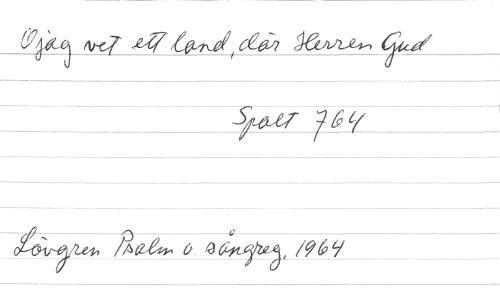 O jag vet ett land, där Herren Gud
Spalt 764
Lövgren Psalm o. sångreg. 1964